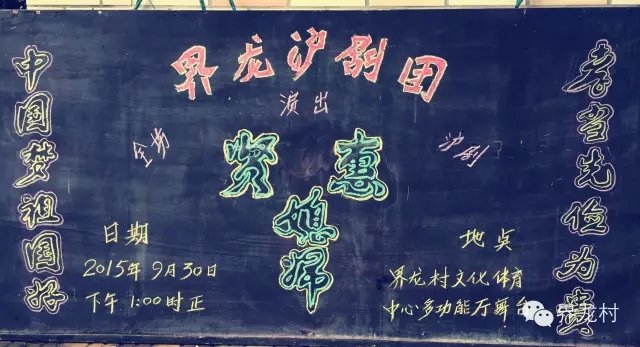 界龙沪剧团
演出
全场
沪剧
贤惠
媳妇
中国梦祖国好
孝当先俭为贵
日期
2015年9月30日
下午1:00时正
地点
界龙村文化体育
中心多功能厅舞台
界龙村